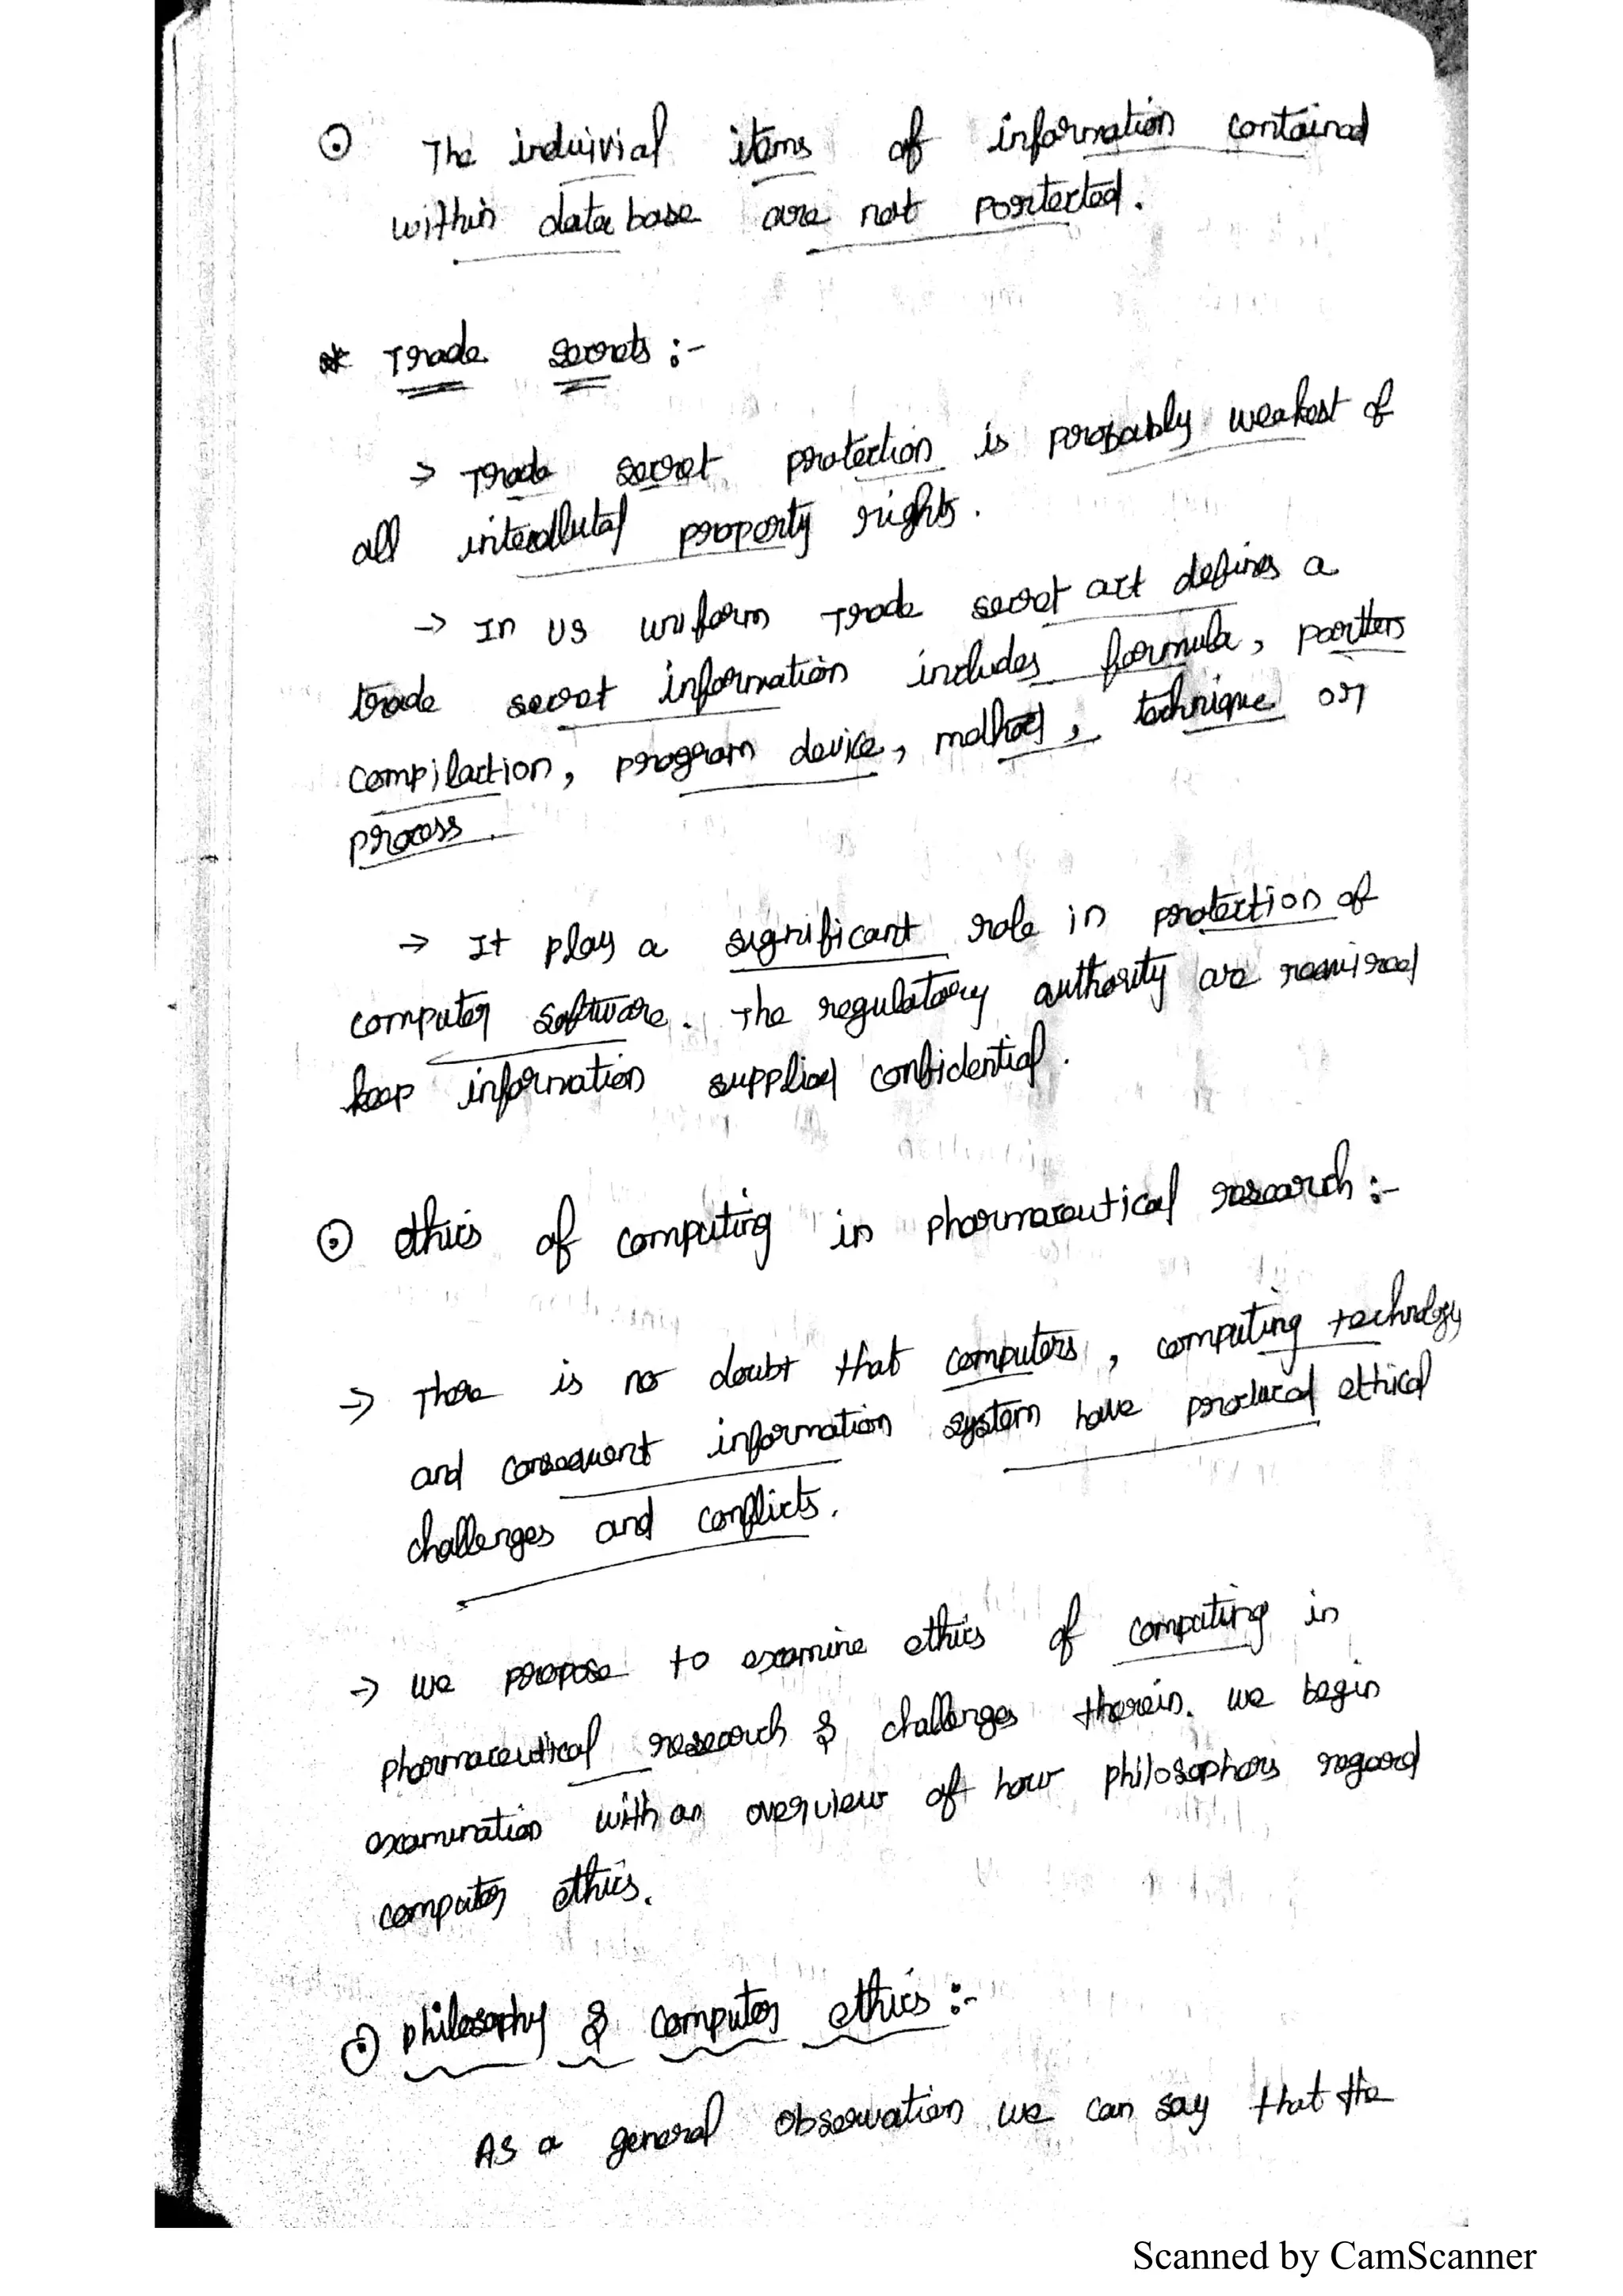 ⊙ The induivial items of information contained
within data base are not portected.
* Trade secrets :-
→ Trade secret protection is probably weakest of
all intellutal property rights.
→ In US uniform Trade secret act defines a
trade secret information includes formula, partters
compilaction, program device, method, technique or
process.
→ It play a significant role in protection of
computer software. The regulatory authority are required
keep information supplied confidential.
⊙ ethics of computing in pharmaceutical research :-
→ There is no doubt that computers, computing technology
and consequent information system have produced ethical
challenges and conflicts.
→ We propose to examine ethics of computing in
pharmaceutical research & challenges therein. we begin
examination with an overview of how philosophers regard
computer ethics.
⊙ philosophy & computer ethics :-
As a general observation we can say that the
Scanned by CamScanner